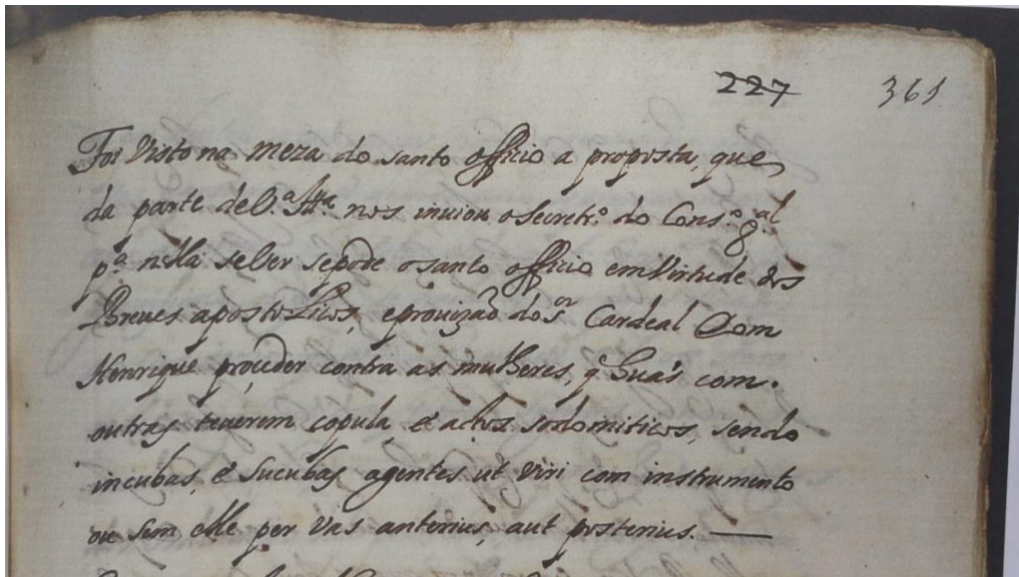 227 361
Foi Visto na Meza do santo officio a proposta, que
da parte de V.ª Ill.ma nos inviou o Secretr.º do Cons.º g.al
p.ª nella se Ver se pode o santo officio em Virtude dos
Breues apostolicos, e prouizaõ do S.or Cardeal Dom
Henrique proceder contra as mulheres, q̃ huãs com
outras teuerem copula, e actos sodomiticos, sendo
incubas, e sucubas agentes ut viri com instrumento
ou sem elle per Vas anterius, aut posterius. —